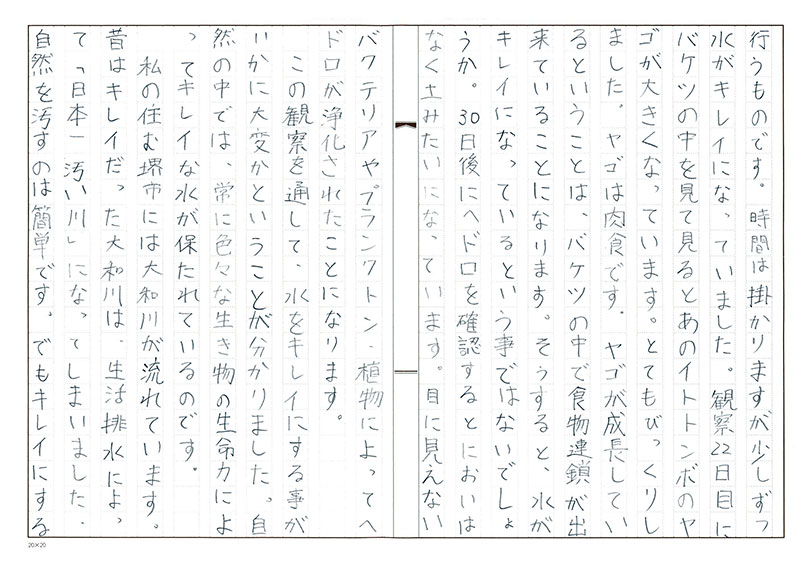 行うものです。時間は掛かりますが少しずつ
水がキレイになっていました。観察22日目に
バケツの中を見て見るとあのイトトンボのヤ
ゴが大きくなっています。とてもびっくりし
ました。ヤゴは肉食です。ヤゴが成長してい
るということは、バケツの中で食物連鎖が出
来ていることになります。そうすると、水が
キレイになっているという事ではないでしょ
うか。30日後にヘドロを確認するとにおいは
なく土みたいになっています。目に見えない
バクテリアやプランクトン、植物によってヘ
ドロが浄化されたことになります。
この観察を通して、水をキレイにする事が
いかに大変かということが分かりました。自
然の中では、常に色々な生き物の生命力によ
ってキレイな水が保たれているのです。
私の住む堺市には大和川が流れています。
昔はキレイだった大和川は、生活排水によっ
て「日本一汚い川」になってしまいました。
自然を汚すのは簡単です。でもキレイにする
20×20